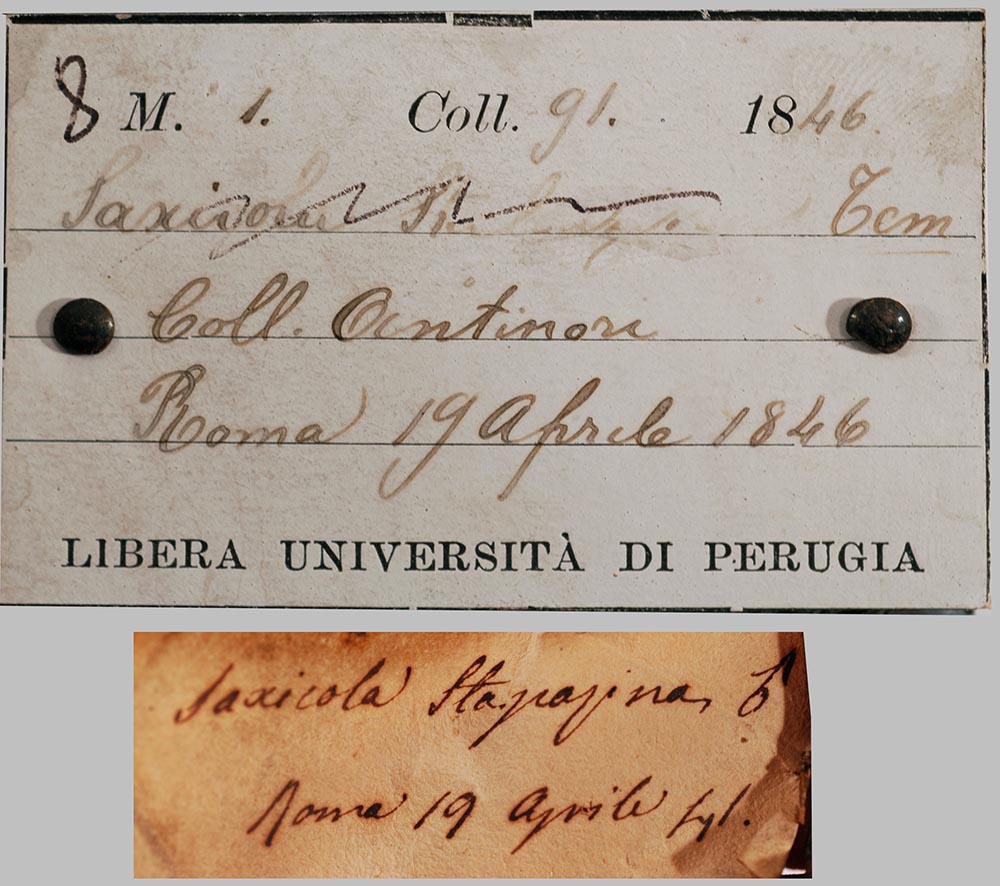 8 M. 1. Coll. 91. 1846.
Saxicola Tem
Coll. Antinori
Roma 19 Aprile 1846
LIBERA UNIVERSITÀ DI PERUGIA
Saxicola Stapazina, ♂
Roma 19 Aprile